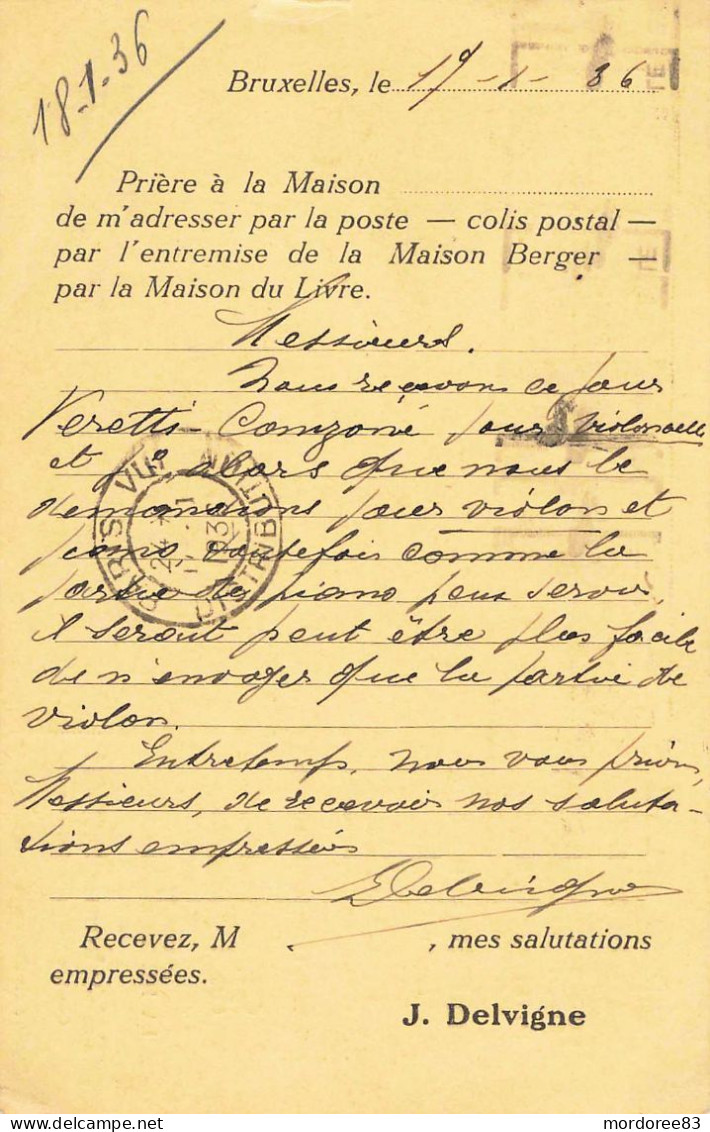 18-1-36
Bruxelles, le 17-1-36
Prière à la Maison
de m'adresser par la poste — colis postal —
par l'entremise de la Maison Berger —
par la Maison du Livre.
Messieurs.
Nous recevons ce jour
Veretti - Canzone pour violoncelle
et po alors que nous le
demandions pour violon et
piano toutefois comme la
partie de piano peut servir,
il serait peut être plus facile
de n'envoyer que la partie de
violon.
Entretemps, nous vous prions,
Messieurs, de recevoir nos saluta-
tions empressées
JDelvigne
Recevez, M , mes salutations
empressées.
J. Delvigne
PARIS VIII DISTRIBUTION
mordoree83